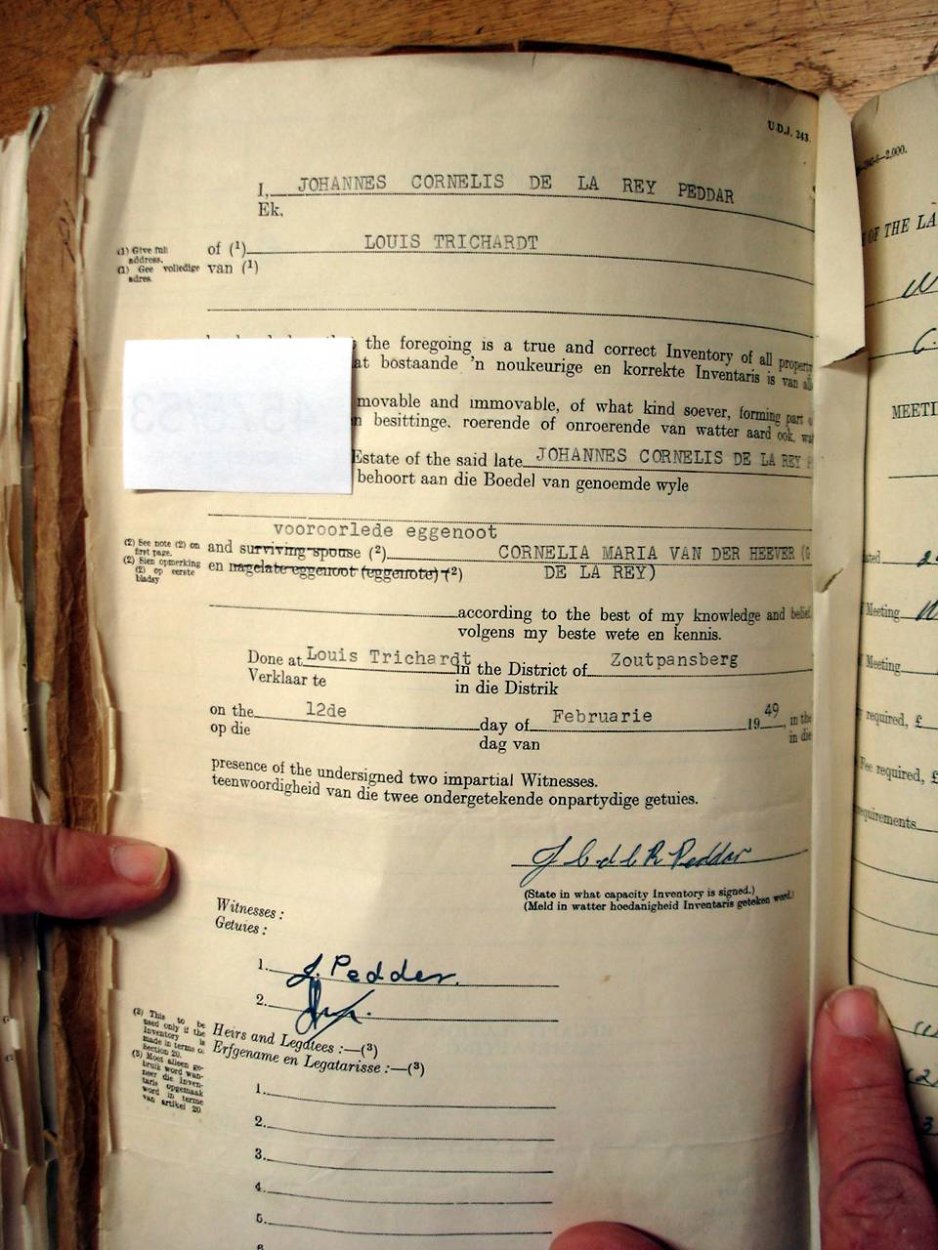 U.D.J. 243.
I, JOHANNES CORNELIS DE LA REY PEDDAR
Ek,
(1) Give full address.
(1) Gee volledige adres.
of (1) LOUIS TRICHARDT
van (1)
the foregoing is a true and correct Inventory of all property
at bostaande 'n noukeurige en korrekte Inventaris is van all
movable and immovable, of what kind soever, forming part o
besittinge, roerende of onroerende van watter aard ook, wa
Estate of the said late JOHANNES CORNELIS DE LA REY
behoort aan die Boedel van genoemde wyle
vooroorlede eggenoot
(2) See note (2) on first page.
(2) Sien opmerking (2) op eerste bladsy
and surviving spouse (2) CORNELIA MARIA VAN DER HEEVER (G
en nagelate eggenoot (eggenote) (2) DE LA REY)
according to the best of my knowledge and belief
volgens my beste wete en kennis.
Done at Louis Trichardt in the District of Zoutpansberg
Verklaar te in die Distrik
on the 12de day of Februarie 1949, in the
op die dag van in die
presence of the undersigned two impartial Witnesses.
teenwoordigheid van die twee ondergetekende onpartydige getuies.
J C d l R Peddar
(State in what capacity Inventory is signed.)
(Meld in watter hoedanigheid Inventaris geteken word.)
Witnesses :
Getuies :
1. J. Pedder.
2.
(3) This to be used only if the Inventory is made in terms of Section 20.
(3) Moet alleen gebruik word wanneer die Inventaris opgemaak word in terme van artikel 20
Heirs and Legatees :—(3)
Erfgename en Legatarisse :—(3)
1.
2.
3.
4.
5.
6
—2,000.
OF THE LA
MEETI
Meeting
Meeting
required, £
Fee required, £
requirements